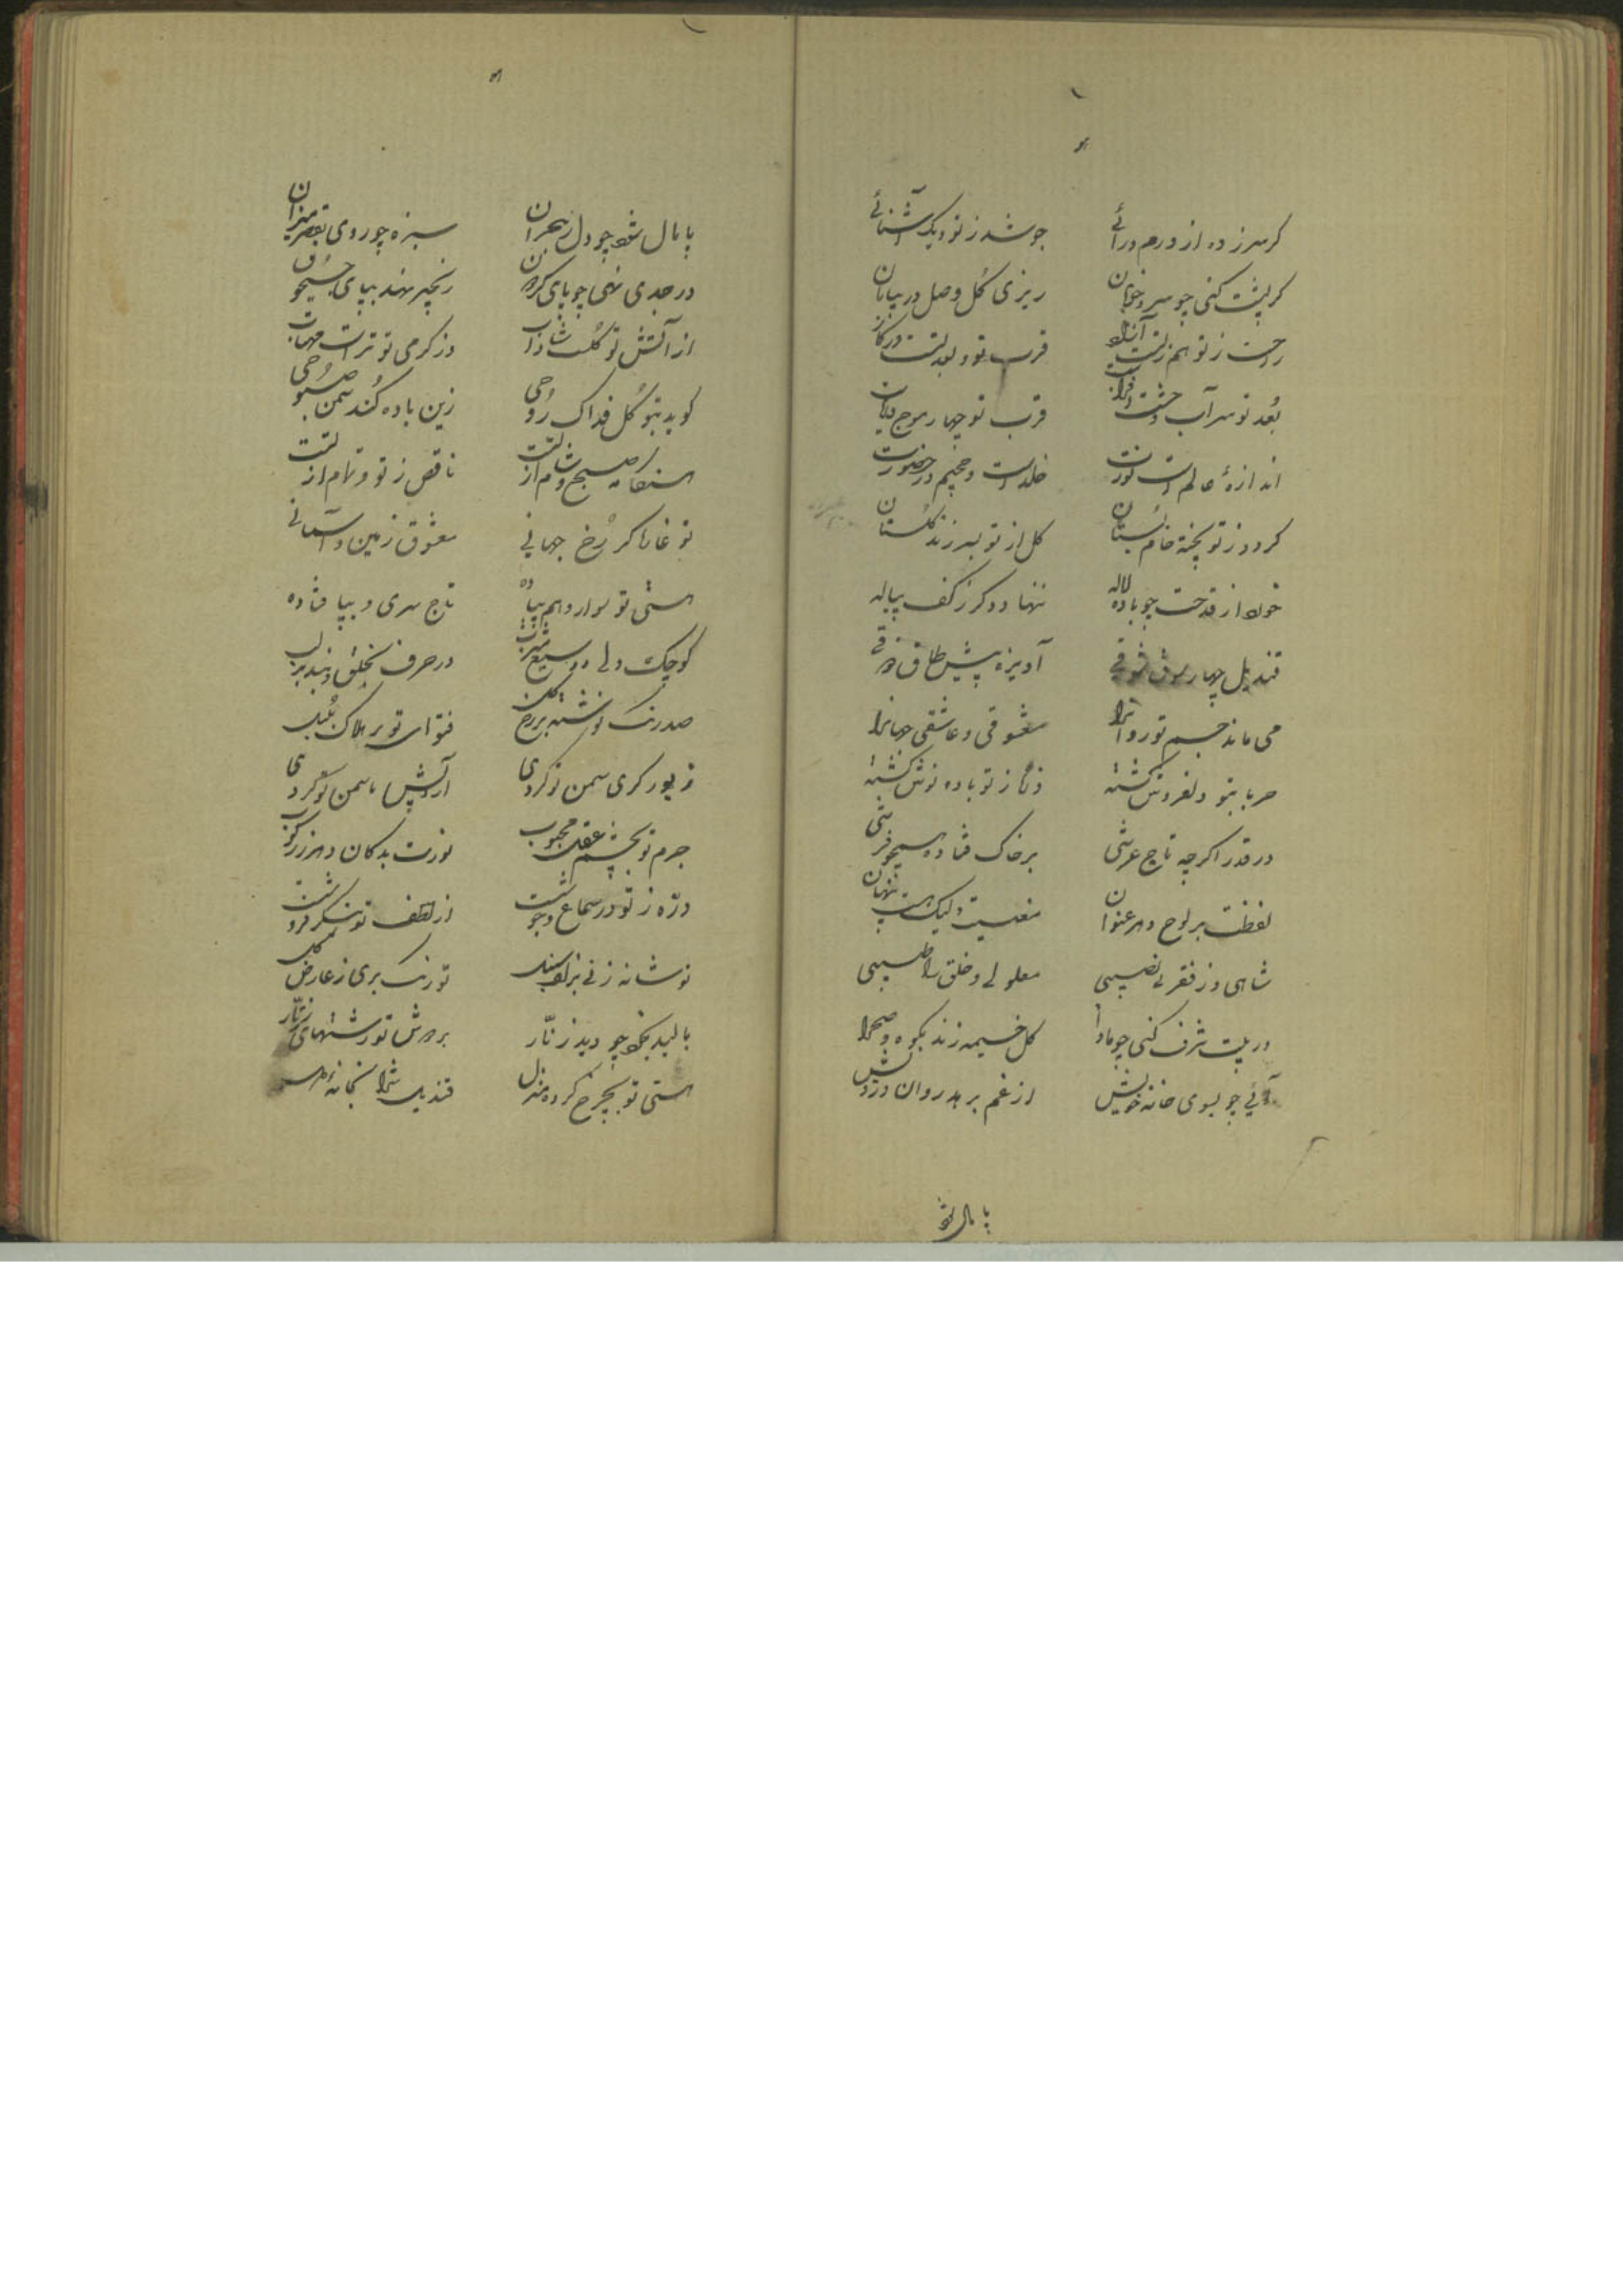 گر سرزده از درم درائے جوشد ز تو دیگ آشنائے
گر پشت کنی چو سرو خوبان ریزی گل وصل در بیابان
راحت ز تو هم قرب تو و بعد
بُعد تو سر آب قرب تو چهار موج
اندازهٔ عالم است نورت خلد است و جحیم در حضورت
گردد ز تو پخته خام بستان گل از تو بسر زند گلستان
خود از قدحت چو باده لاله ننهاد دگر ز کف پیاله
قندیل چهار سوق شوقے آویزه پیش طاق ذوقے
می ماند جسم تو روانرا معشوقی و عاشقی جهانرا
حربا بتو دلفروش گشته ذرات ز تو باده نوش گشته
در قدر اگر چه تاج عرشی بر خاک فتاده همچو فرشی
لفظت بر لوح دهر عنوان معنیت ولیک هست پنهان
شاهی و ز فقر بی نصیبی معلولی و خلق را طبیبی
در بیت شرف کنی چو ماوا گل خیمه زند بکوه و صحرا
آئی چو بسوی خانه خویش از غم برهد روان درویش
پامال شود
پامال شود چو دل ز هجران سبزه چو روی بقصر میزان
در جدی نهی چو پای گردون زنجیر نهد بپای جیحون
از آتش تو گلست شاداب وز گرمی تو تراست مهتاب
گوید بتو گل فداک روحی زین باده کند سمن صبوحی
هنگامه صبح و شام از تست ناقص ز تو و تمام از تست
تو غازه گر رخ جهانی معشوق زمین و آسمانی
هستی تو سوار و هم پیاده تاج سری و بپا فتاده
کوچک دلی و وسیع مشرب در حرف بخلق و بسته لب
صد رنگ نوشته بر رخ گل فتوای تو بر هلاک بلبل
زیور گری سمن تو کردی آرایش یاسمن تو کردی
جرم تو بچشم عقل محبوب نورت بدکان دهر زرکوب
ذره ز تو در سماع و جوشست از لطف تو شکر فروشست
تو شانه زنی بزلف سنبل تو رنگ بری ز عارض گل
بالید بخود چو دید زنّار بر دوش تو رشتهای زنّار
هستی تو بچرخ کرده منزل قندیل ترا بخانه